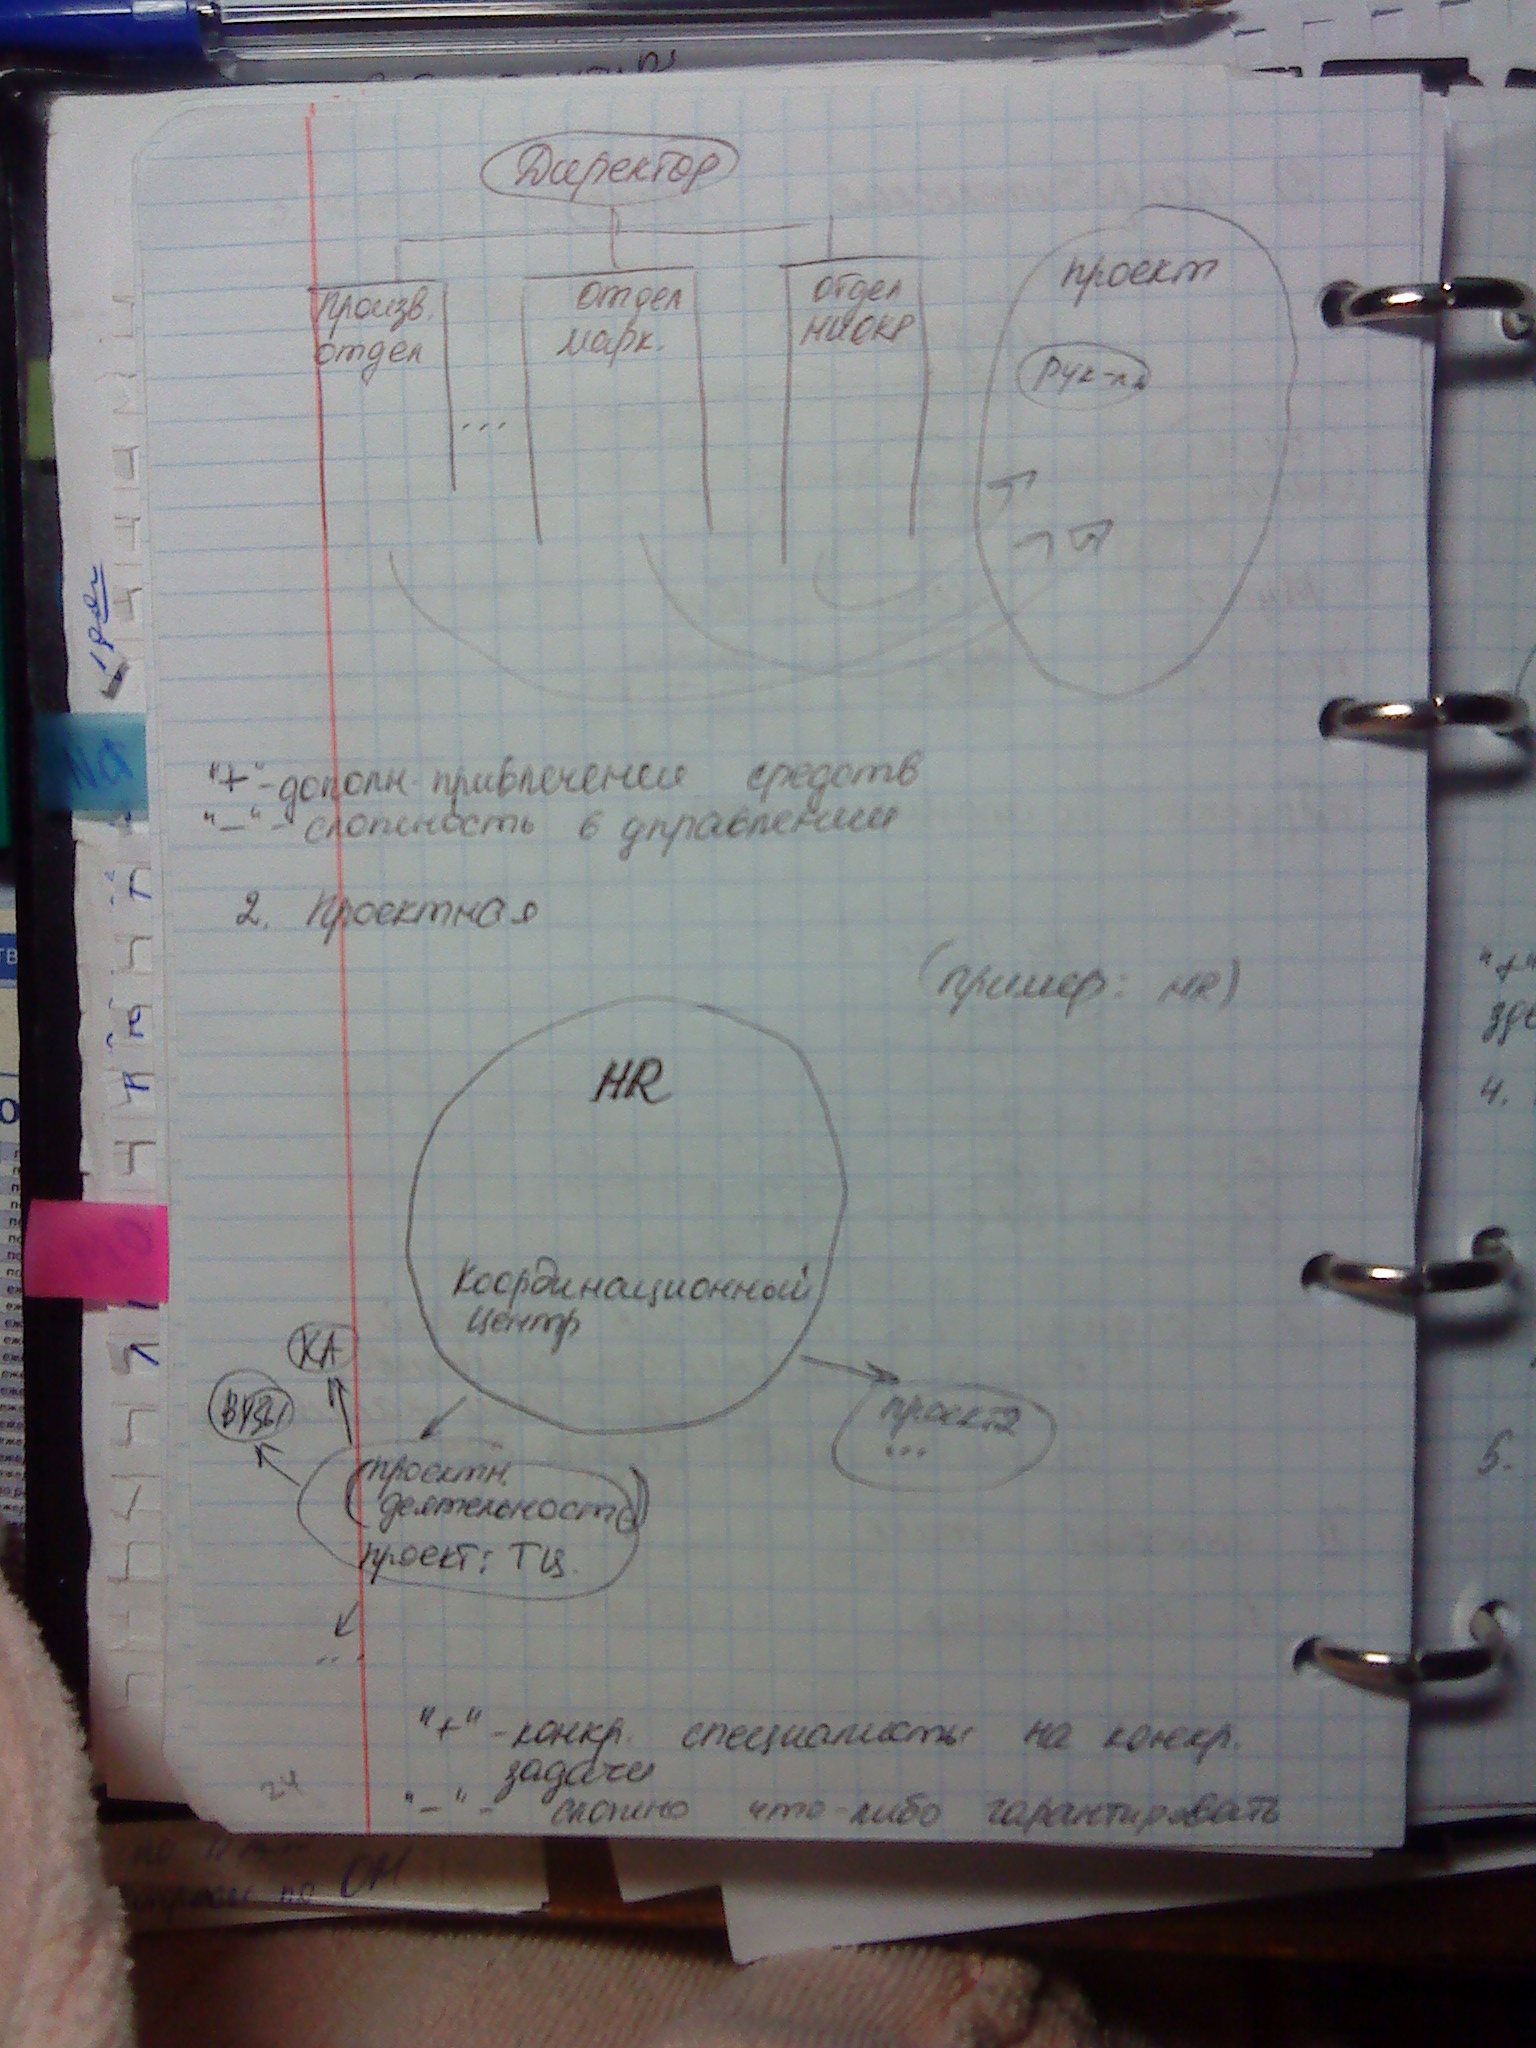 Директор
произв.
отдел
...
отдел
марк.
отдел
НИОКР
проект
рук-ль
"+"-дополн. привлечении средств
"–"- сложность в управлении
2. Проектная
(пример: HR)
HR
Координационный
центр
КА
ВУЗЫ
проект2
...
(проектн.
деятельность)
проект: ТЦ.
...
"+" -конкр. специалисты на конкр.
задачи
"–"- сложно что-либо гарантировать
24
"+"
4.
5.
по ОМ